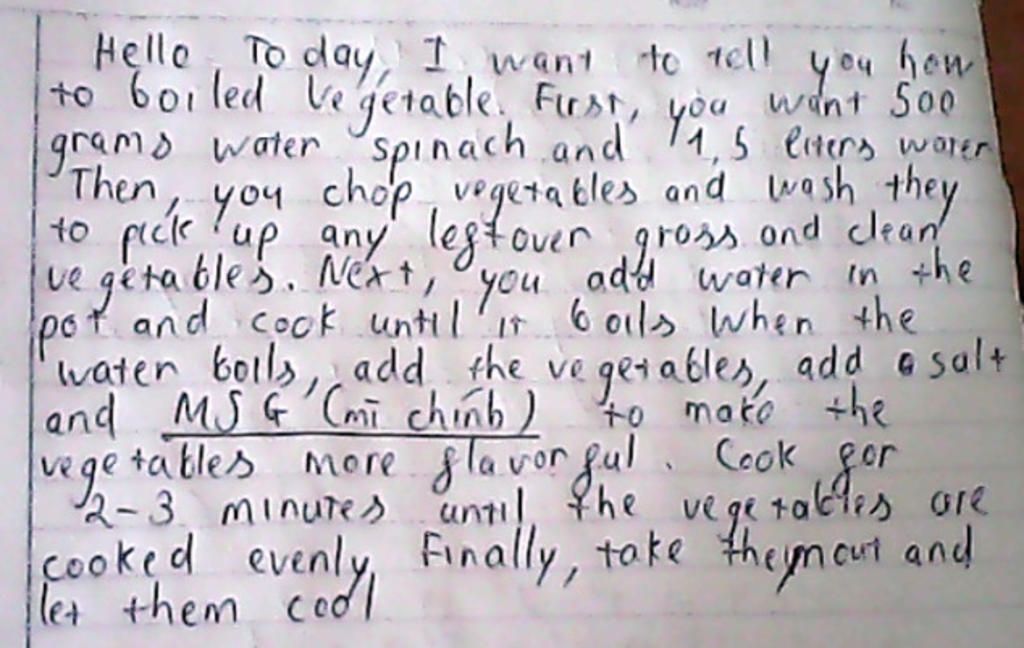 Hello Today, I want to tell you how
to boiled vegetable. First, you want 500
grams water spinach and 1,5 liters water
Then, you chop vegetables and wash they
to pick up any leftover gross and clean
vegetables. Next, you add water in the
pot and cook until it boils When the
water boils, add the vegetables, add salt
and MSG (mì chính) to make the
vegetables more flavorful. Cook for
2-3 minutes until the vegetables are
cooked evenly, Finally, take them out and
let them cool